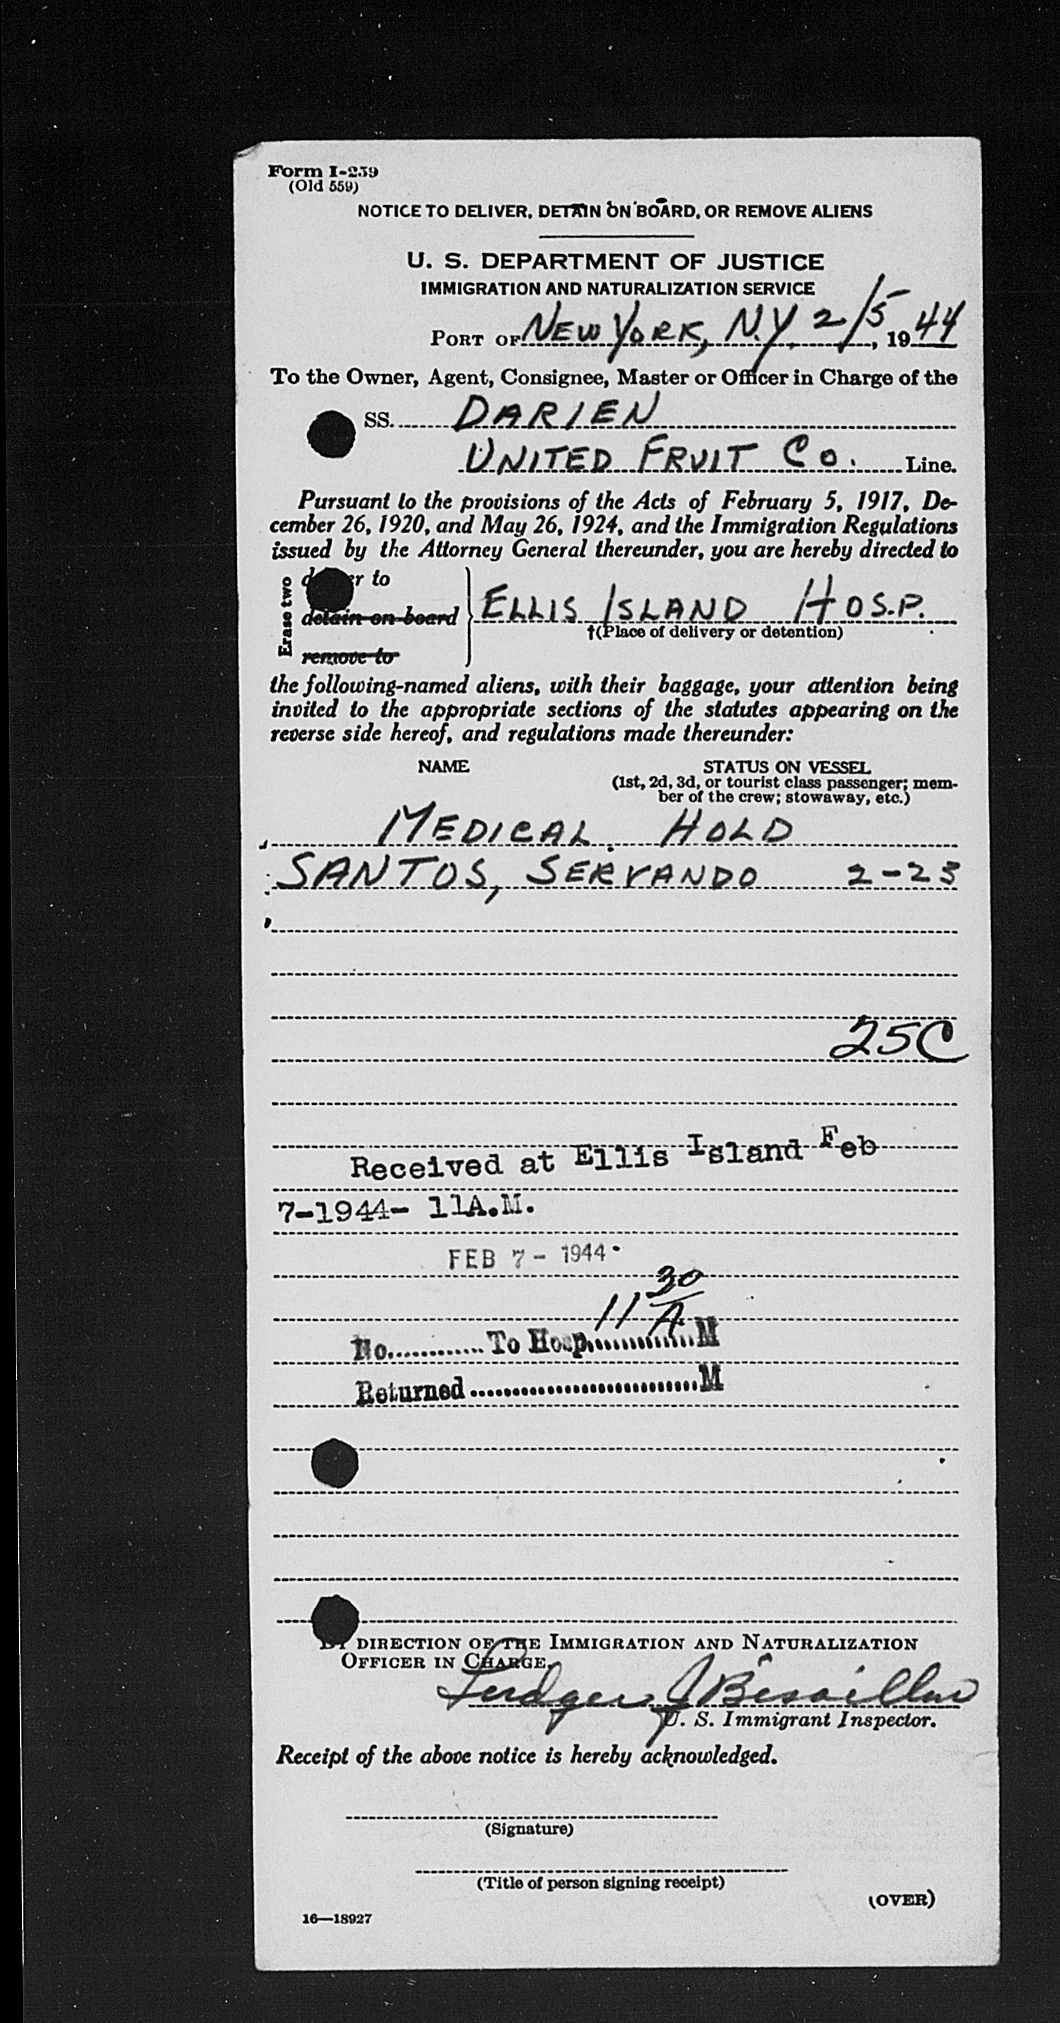 Form I-259
(Old 559)
NOTICE TO DELIVER, DETAIN ON BOARD, OR REMOVE ALIENS
U. S. DEPARTMENT OF JUSTICE
IMMIGRATION AND NATURALIZATION SERVICE
PORT OF NEW YORK, N.Y. 2/5, 1944
To the Owner, Agent, Consignee, Master or Officer in Charge of the
SS. DARIEN
UNITED FRUIT CO. Line.
Pursuant to the provisions of the Acts of February 5, 1917, De-
cember 26, 1920, and May 26, 1924, and the Immigration Regulations
issued by the Attorney General thereunder, you are hereby directed to
Erase two
to
detain on board
ELLIS ISLAND HOSP.
†(Place of delivery or detention)
remove to
the following-named aliens, with their baggage, your attention being
invited to the appropriate sections of the statutes appearing on the
reverse side hereof, and regulations made thereunder:
NAME STATUS ON VESSEL
(1st, 2d, 3d, or tourist class passenger; mem-
ber of the crew; stowaway, etc.)
MEDICAL HOLD
SANTOS, SERVANDO 2-23
25C
Received at Ellis Island Feb
7-1944- 11A.M.
FEB 7 - 1944
11 30/A
No. To Hosp. M
Returned M
BY DIRECTION OF THE IMMIGRATION AND NATURALIZATION
OFFICER IN CHARGE,
J
U. S. Immigrant Inspector.
Receipt of the above notice is hereby acknowledged.
(Signature)
(Title of person signing receipt)
(OVER)
16—18927